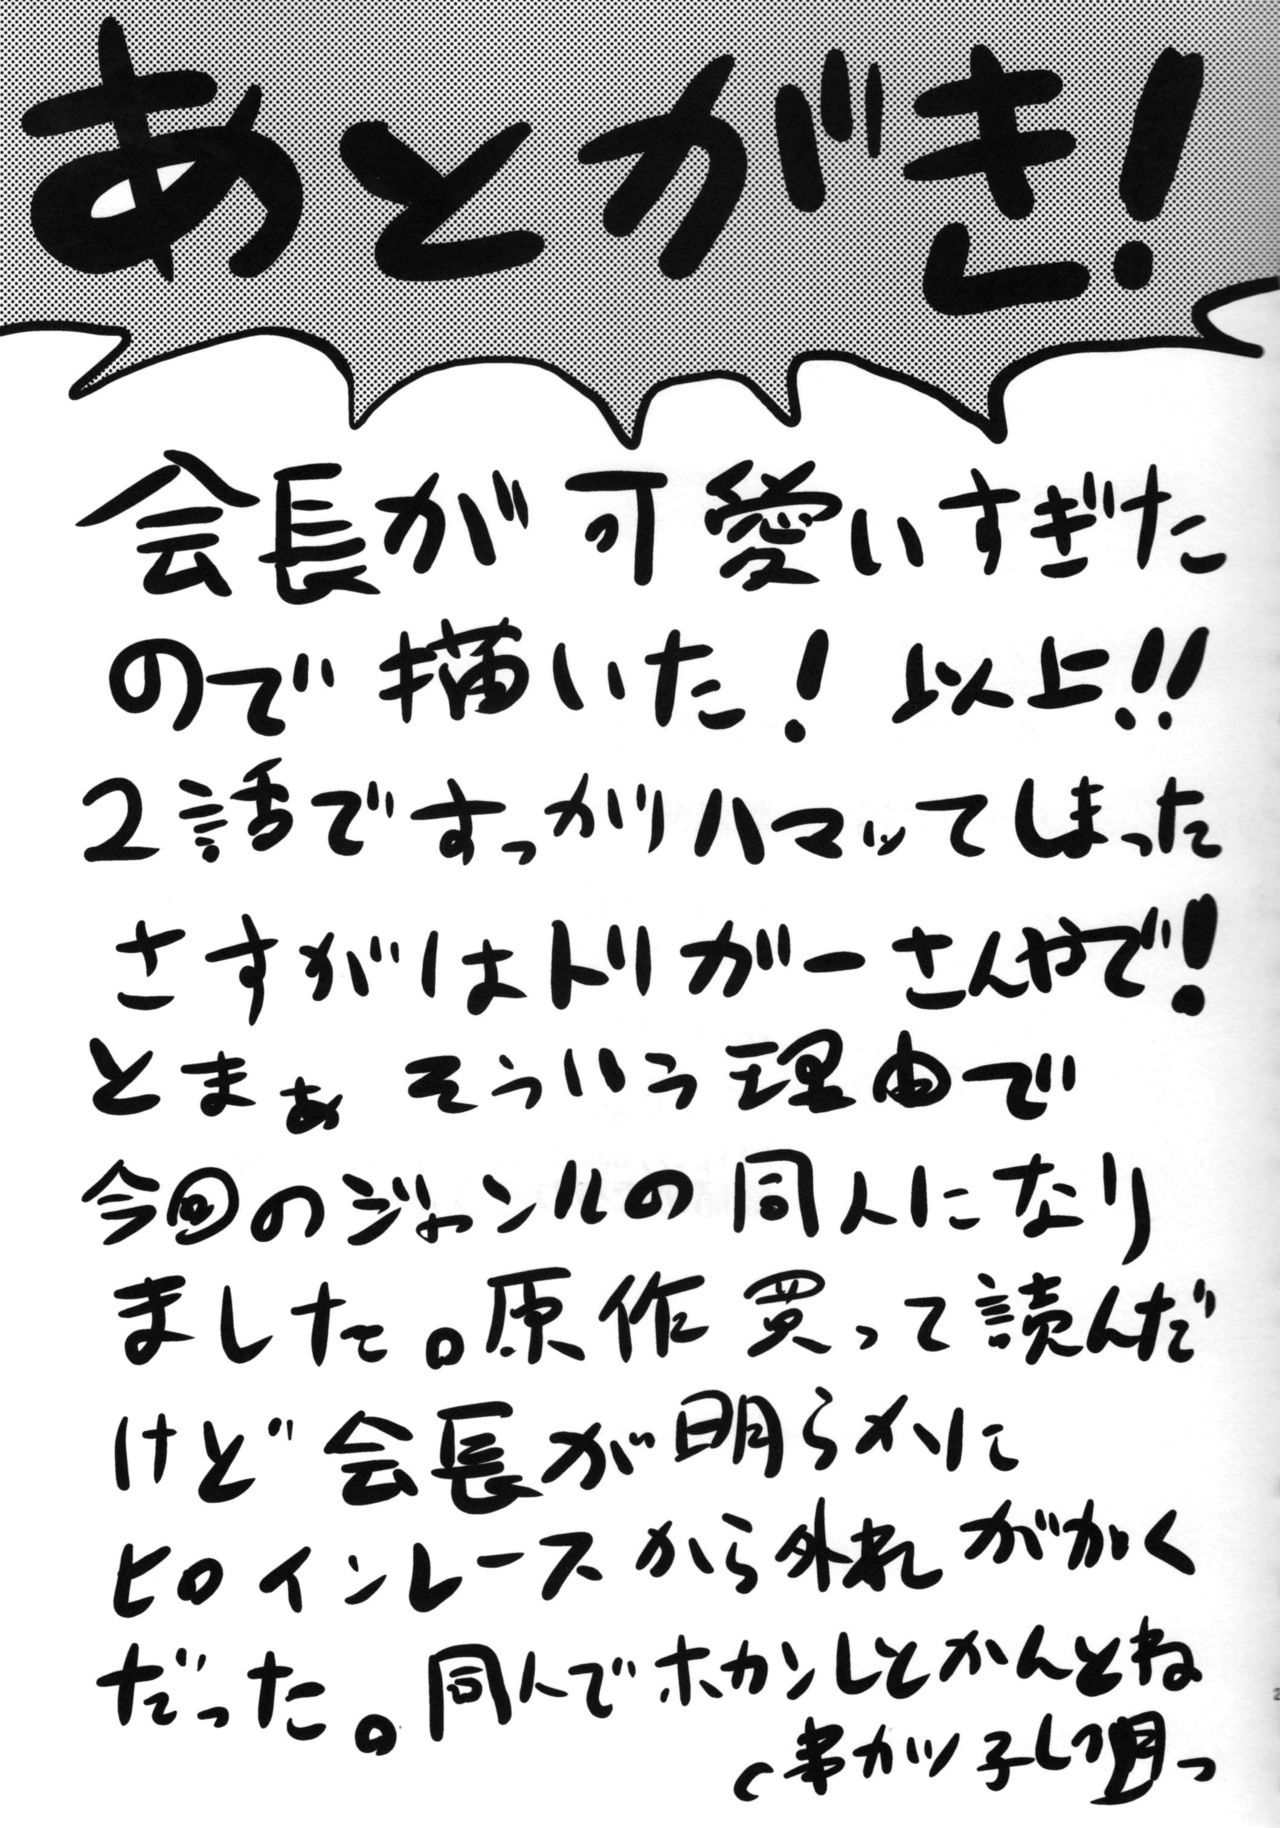 あとがき!
会長が可愛いすぎた
ので描いた! 以上!!
2話ですっかりハマッてしまった
さすがはトリガーさんやで!
とまぁ そういう理由で
今回のジャンルの同人になり
ました。原作買って読んだ
けど会長が明らかに
ヒロインレースから外れがかく
だった。同人でホカンしとかんとね
串カツ子し
2